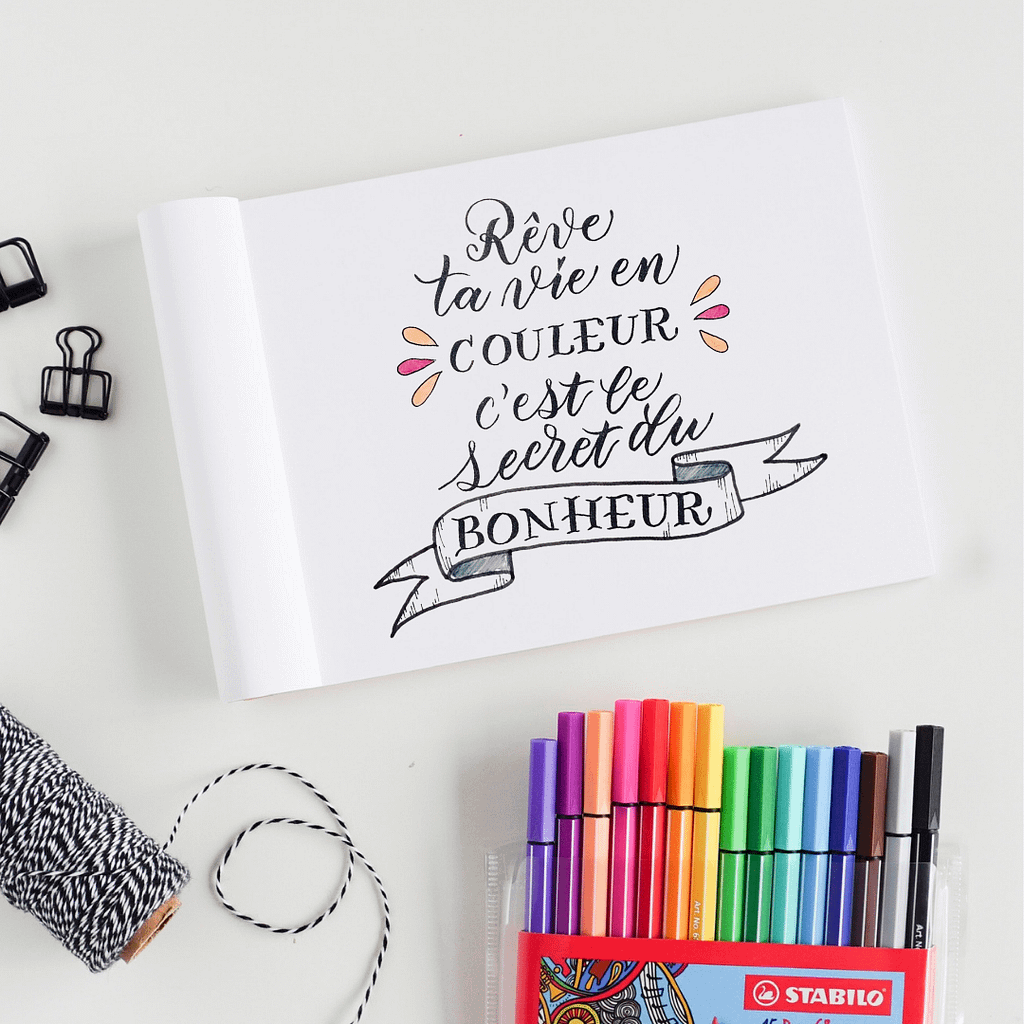 Rêve
ta vie en
COULEUR
c'est le
secret du
BONHEUR
Art. No. 6
Art. No
STABILO